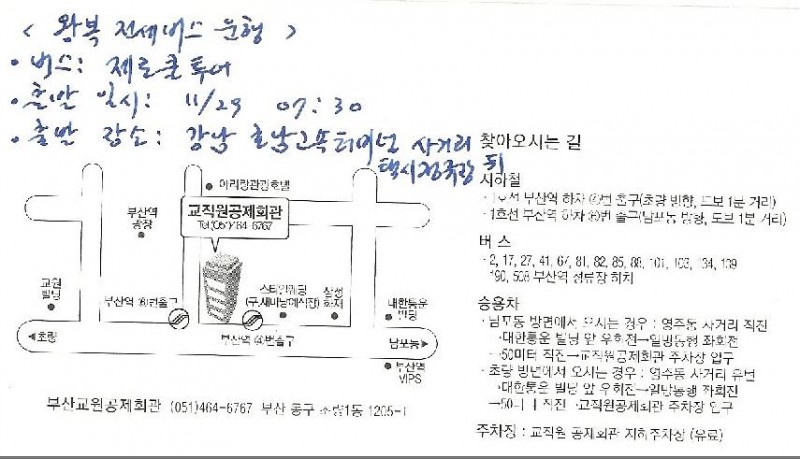 < 왕복 전세버스 운행 >
• 버스: 제로쿨투어
• 출발 일시: 11/29 07:30
• 출발 장소: 강남 호남고속터미널 사거리
택시정류장 뒤
찾아오시는 길
지하철
- 1호선 부산역 하차 번 출구(초량 방향, 도보 1분 거리)
- 1호선 부산역 하차 번 출구(남포동 방향, 도보 1분 거리)
버 스
- 2, 17, 27, 41, 67, 81, 82, 85, 88, 101, 103, 134, 139
190, 508 부산역 정류장 하차
승용차
- 남포동 방면에서 오시는 경우 : 영주동 사거리 직진
→대한통운 빌딩 앞 우회전→일방통행 좌회전
→50미터 직진→교직원공제회관 주차장 입구
- 초량 방면에서 오시는 경우 : 영주동 사거리 유턴
→대한통운 빌딩 앞 우회전→일방통행 좌회전
→50미터 직진→교직원공제회관 주차장 입구
주차장 : 교직원 공제회관 지하주차장 (유료)
아리랑관광호텔
교직원공제회관
Tel.(051)464-6767
부산역
광장
교원
빌딩
부산역 번출구
(구.새마당예식장)
삼성
화재
대한통운
빌딩
◀초량
부산역 번출구
남포동▶
부산역
VIPS
부산교원공제회관 (051)464-6767 부산 동구 초량1동 1205-1